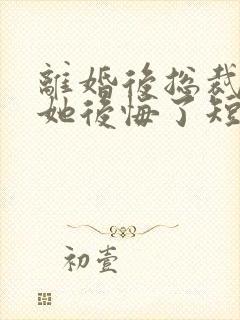 離婚後捴裁
她後悔了短
初壹